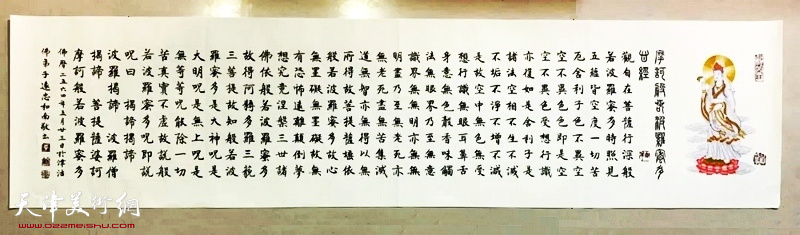 摩訶般若波羅蜜多
心經
觀自在菩薩行深般
若波羅蜜多時照見
五蘊皆空度一切苦
厄舍利子色不異空
空不異色色即是空
空即是色受想行識
亦復如是舍利子是
諸法空相不生不滅
不垢不淨不增不減
是故空中無色無受
想行識無眼耳鼻舌
身意無色聲香味觸
法無眼界乃至無意
識界無無明亦無無
明盡乃至無老死亦
無老死盡無苦集滅
道無智亦無得以無
所得故菩提薩埵依
般若波羅蜜多故心
無罣礙無罣礙故無
有恐怖遠離顛倒夢
想究竟涅槃三世諸
佛依般若波羅蜜多
故得阿耨多羅三藐
三菩提故知般若波
羅蜜多是大神呪是
大明呪是無上呪是
無等等呪能除一切
苦真實不虛故說般
若波羅蜜多呪即說
呪曰 揭諦揭諦
波羅揭諦 波羅僧
揭諦 菩提薩婆訶
摩訶般若波羅蜜多
佛曆二五六四年五月廿三日於津沽
佛弟子遠忠和南敬書
天津美術網
www.022meishu.com